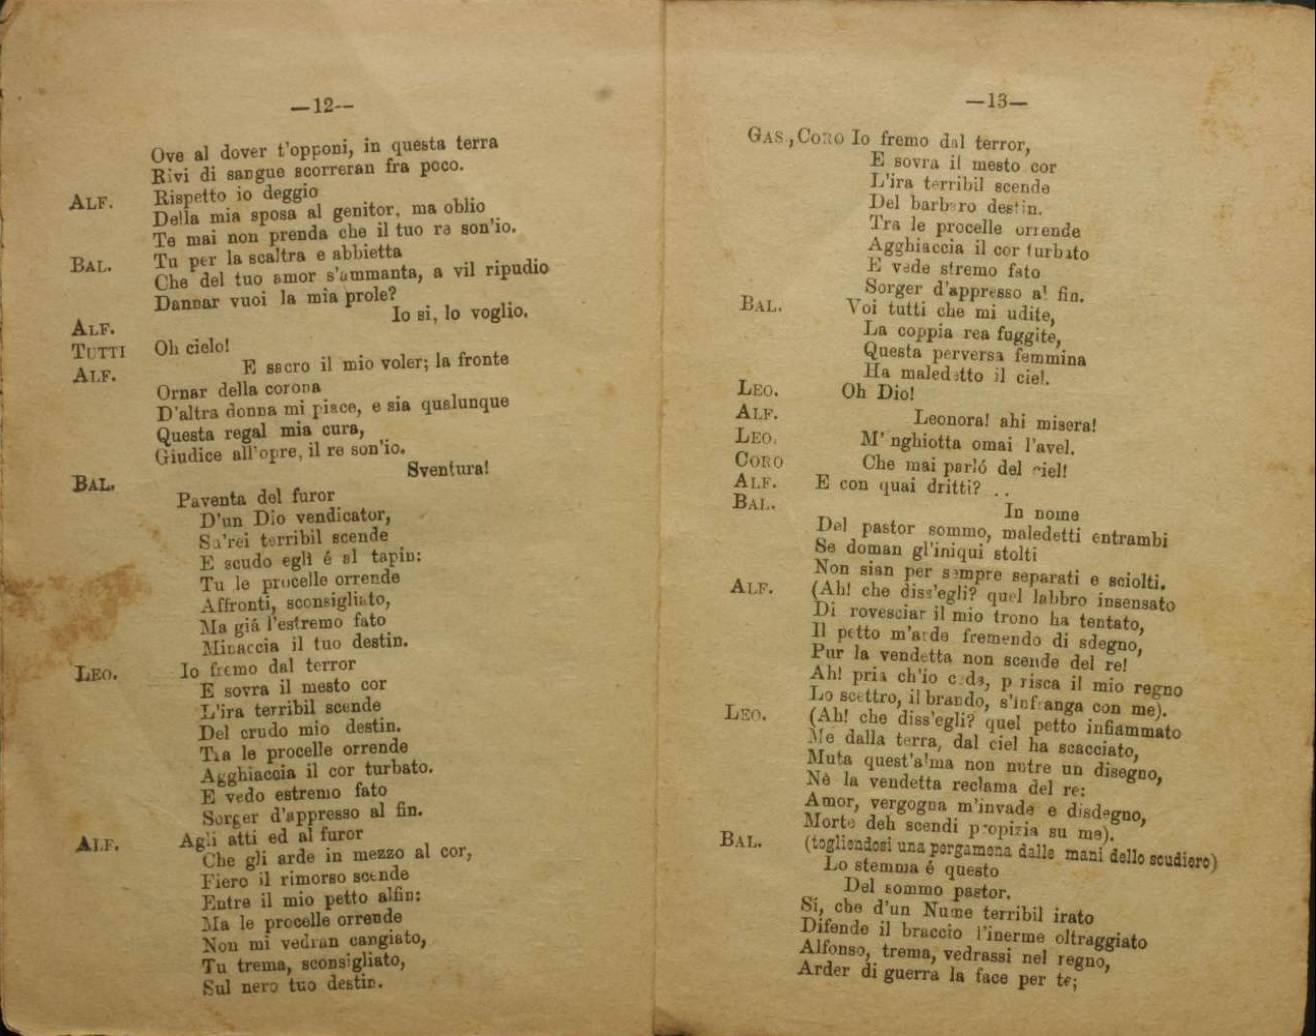 —12--
Ove al dover t'opponi, in questa terra
Rivi di sangue scorreran fra poco.
ALF. Rispetto io deggio
Della mia sposa al genitor, ma oblio
Te mai non prenda che il tuo re son'io.
BAL. Tu per la scaltra e abbietta
Che del tuo amor s'ammanta, a vil ripudio
Dannar vuoi la mia prole?
ALF. Io si, lo voglio.
TUTTI Oh cielo!
ALF. E sacro il mio voler; la fronte
Ornar della corona
D'altra donna mi piace, e sia qualunque
Questa regal mia cura,
Giudice all'opre, il re son'io.
BAL. Sventura!
Paventa del furor
D'un Dio vendicator,
Su'rei terribil scende
E scudo egli é al tapin:
Tu le procelle orrende
Affronti, sconsigliato,
Ma giá l'estremo fato
Minaccia il tuo destin.
LEO. Io fremo dal terror
E sovra il mesto cor
L'ira terribil scende
Del crudo mio destin.
Tra le procelle orrende
Agghiaccia il cor turbato.
E vedo estremo fato
Sorger d'appresso al fin.
ALF. Agli atti ed al furor
Che gli arde in mezzo al cor,
Fiero il rimorso scende
Entre il mio petto alfin:
Ma le procelle orrende
Non mi vedran cangiato,
Tu trema, sconsigliato,
Sul nero tuo destin.
—13—
GAS., CORO Io fremo dal terror,
E sovra il mesto cor
L'ira terribil scende
Del barbaro destin.
Tra le procelle orrende
Agghiaccia il cor turbato
E vede stremo fato
Sorger d'appresso al fin.
BAL. Voi tutti che mi udite,
La coppia rea fuggite,
Questa perversa femmina
Ha maledetto il ciel.
LEO. Oh Dio!
ALF. Leonora! ahi misera!
LEO. M' nghiotta omai l'avel.
CORO Che mai parló del ciel!
ALF. E con quai dritti? . .
BAL. In nome
Del pastor sommo, maledetti entrambi
Se doman gl'iniqui stolti
Non sian per sempre separati e sciolti.
ALF. (Ah! che diss'egli? quel labbro insensato
Di rovesciar il mio trono ha tentato,
Il petto m'arde fremendo di sdegno,
Pur la vendetta non scende del re!
Ah! pria ch'io ceda, p risca il mio regno
Lo scettro, il brando, s'infranga con me).
LEO. (Ah! che diss'egli? quel petto infiammato
Me dalla terra, dal ciel ha scacciato,
Muta quest'alma non nutre un disegno,
Nè la vendetta reclama del re:
Amor, vergogna m'invade e disdegno,
Morte deh scendi propizia su me).
BAL. (togliendosi una pergamena dalle mani dello scudiero)
Lo stemma é questo
Del sommo pastor.
Sí, che d'un Nume terribil irato
Difende il braccio l'inerme oltraggiato
Alfonso, trema, vedrassi nel regno,
Arder di guerra la face per te;